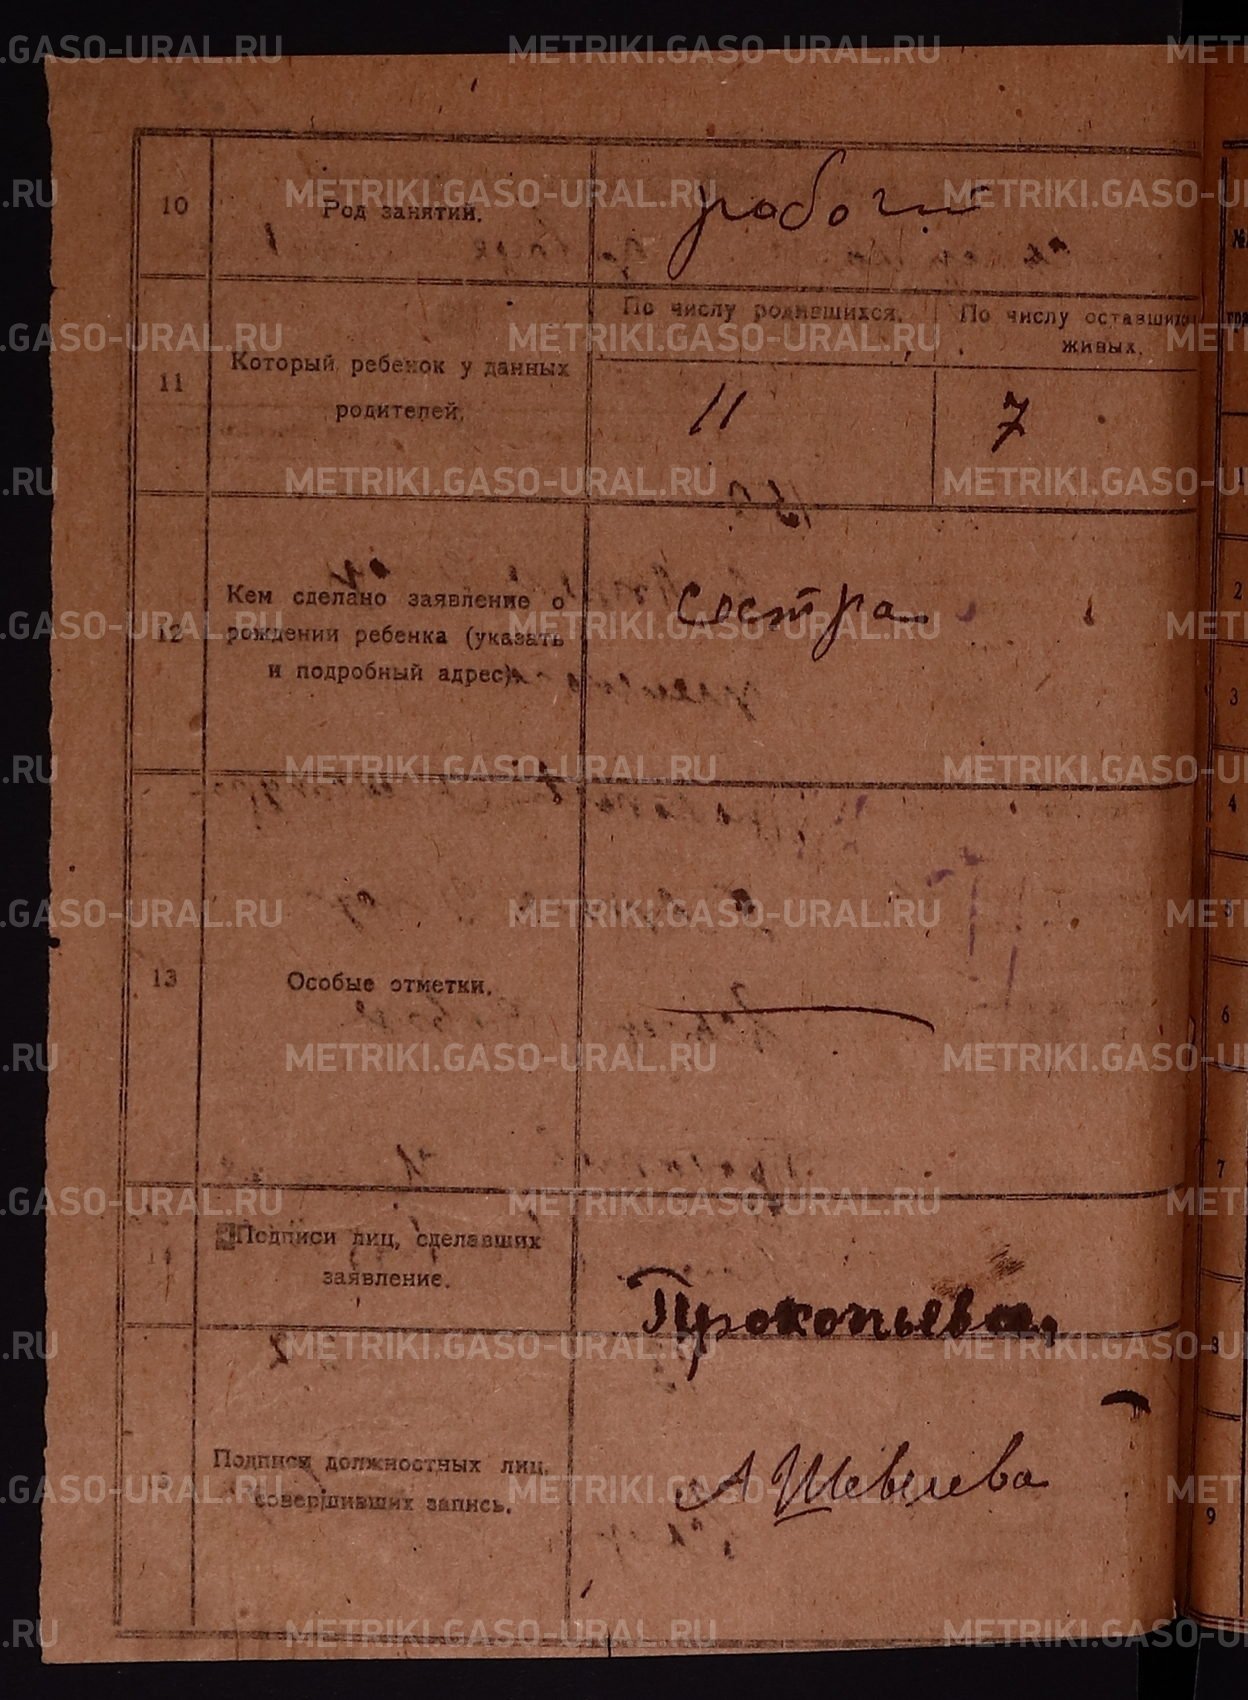 10 Род занятий. рабочий
11 Который ребенок у данных родителей.
По числу родившихся. 11
По числу оставшихся живых. 7
12 Кем сделано заявление о
рождении ребенка (указать
и подробный адрес).
сестра
13 Особые отметки.
14 Подписи лиц, сделавших
заявление.
Прокопьева
Подписи должностных лиц,
совершивших запись.
А Шевелева
2
3
4
5
6
7
8
9
METRIKI.GASO-URAL.RU